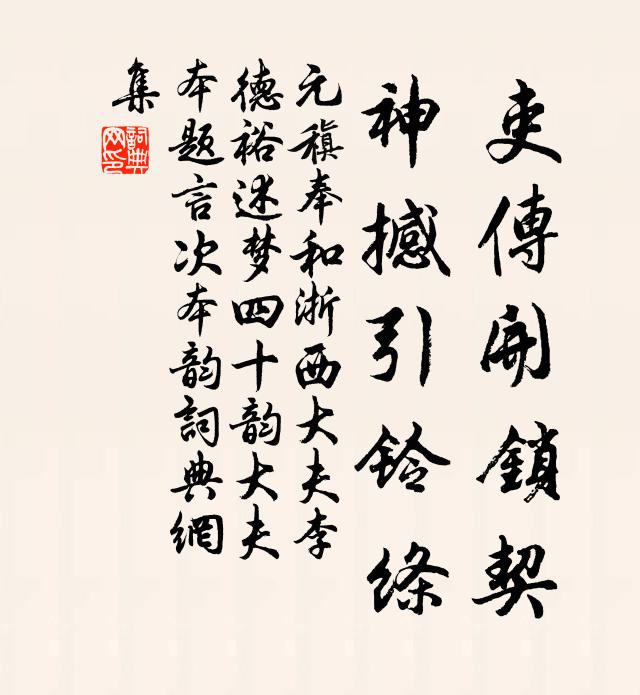 吏傳開鎖契
神撼引鈴絛
元稹奉和浙西大夫李
德裕述梦四十韵大夫
本题言次本韵詞典網
集
詞典网印